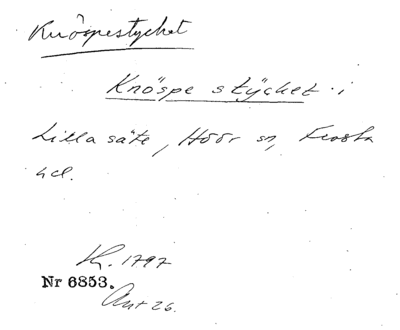 Knöspestycket
Knöspe stycket i
Lilla säte, Höör sn, Frosta
hd.
Kh. 1797
Nr 6853.
Akt 26.